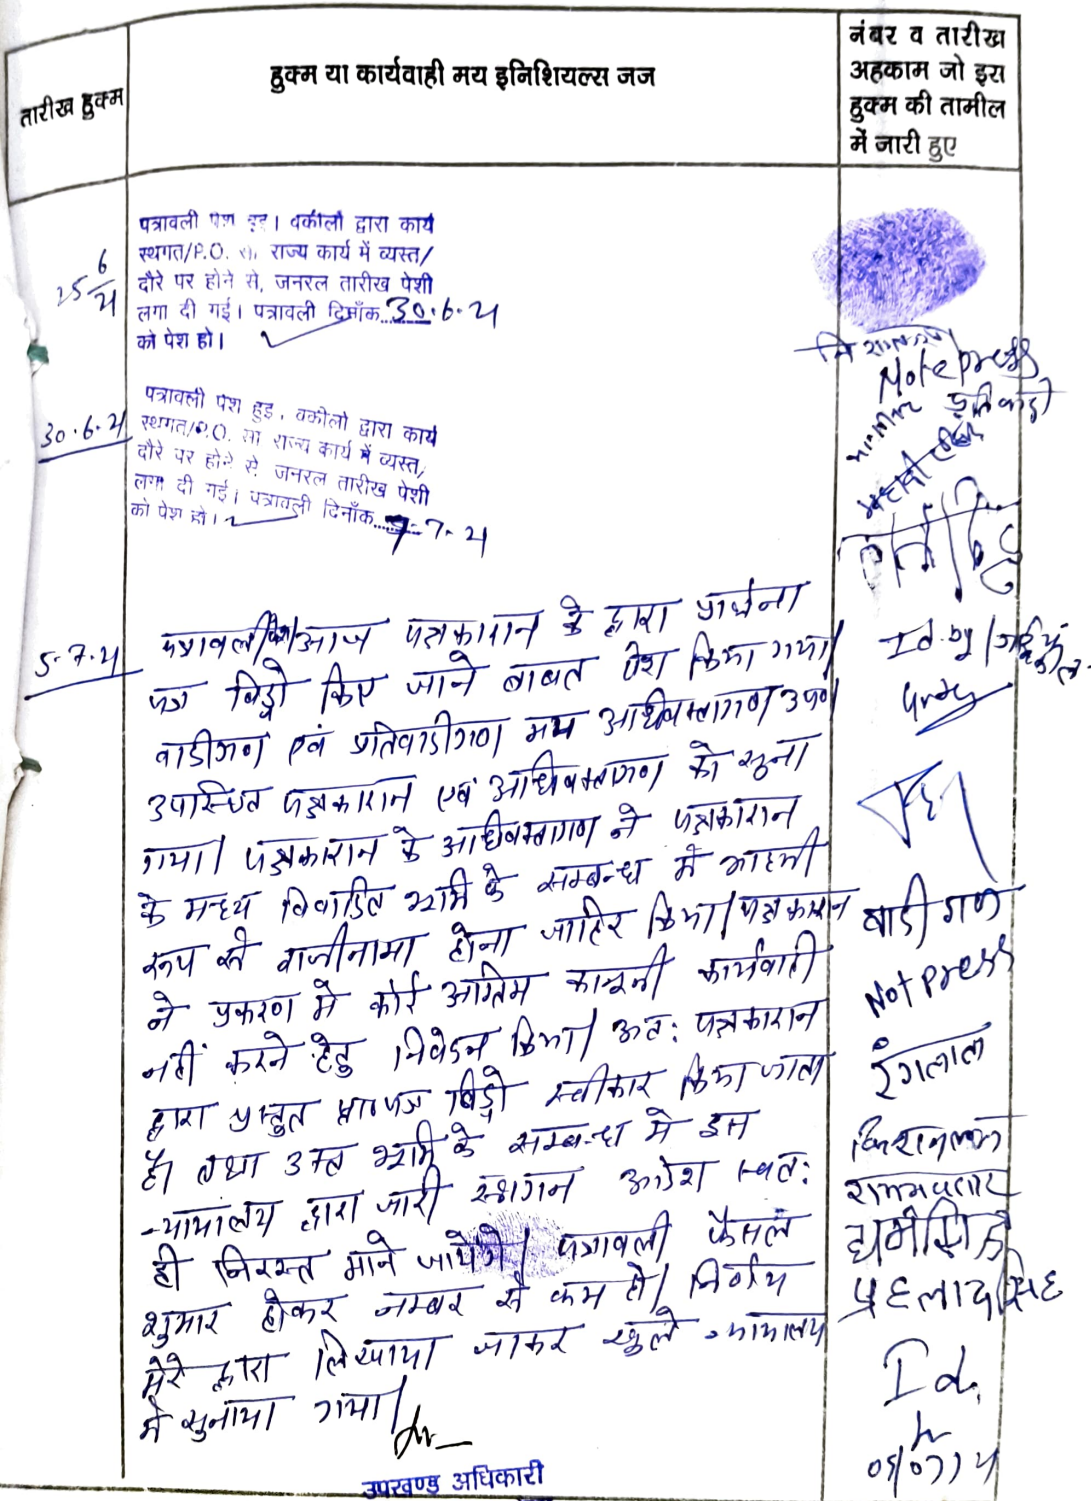 तारीख हुक्म
हुक्म या कार्यवाही मय इनिशियल्स जज
नंबर व तारीख
अहकाम जो इस
हुक्म की तामील
में जारी हुए
25 6/21
पत्रावली पेश हुई। वकीलों द्वारा कार्य
स्थगत/P.O. सा. राज्य कार्य में व्यस्त/
दौरे पर होने से, जनरल तारीख पेशी
लगा दी गई। पत्रावली दिनाँक 30.6.21
को पेश हो।
30.6.21
पत्रावली पेश हुई, वकीलों द्वारा कार्य
स्थगत/P.O. सा राज्य कार्य में व्यस्त,
दौरे पर होने से जनरल तारीख पेशी
लगा दी गई। पत्रावली दिनाँक 7-7-21
को पेश हो।
5.7.21
पत्रावली पेश। आज पक्षकारान के द्वारा प्रार्थना
पत्र विड्रो किए जाने बाबत पेश किया गया।
वादीगण एवं प्रतिवादीगण मय अधिवक्तागण उप०
उपस्थित पक्षकारान एवं अधिवक्तागण को सुना
गया। पक्षकारान के अधिवक्तागण ने पक्षकारान
के मध्य विवादित भूमि के सम्बन्ध में
रूप से राजीनामा होना जाहिर किया। पक्षकारान
ने प्रकरण में कोई अग्रिम कानूनी कार्यवाही
नहीं करने हेतु निवेदन किया। अतः पक्षकारान
द्वारा प्रस्तुत प्रा०पत्र विड्रो स्वीकार किया जाता
है। तथा उक्त भूमि के सम्बन्ध में इस
न्यायालय द्वारा जारी स्थगन आदेश स्वतः
ही निरस्त माने जायेंगे। पत्रावली फैसल
शुमार होकर नम्बर से कम हो। निर्णय
मेरे द्वारा लिखाया जाकर खुले न्यायालय
में सुनाया गया।
उपखण्ड अधिकारी
Note press
Id. by
वादी गण
Not press
रंगलाल
किशनलाल
रामअवतार
धर्मसिंह
प्रहलाद सिंह
Id.
05/07/21